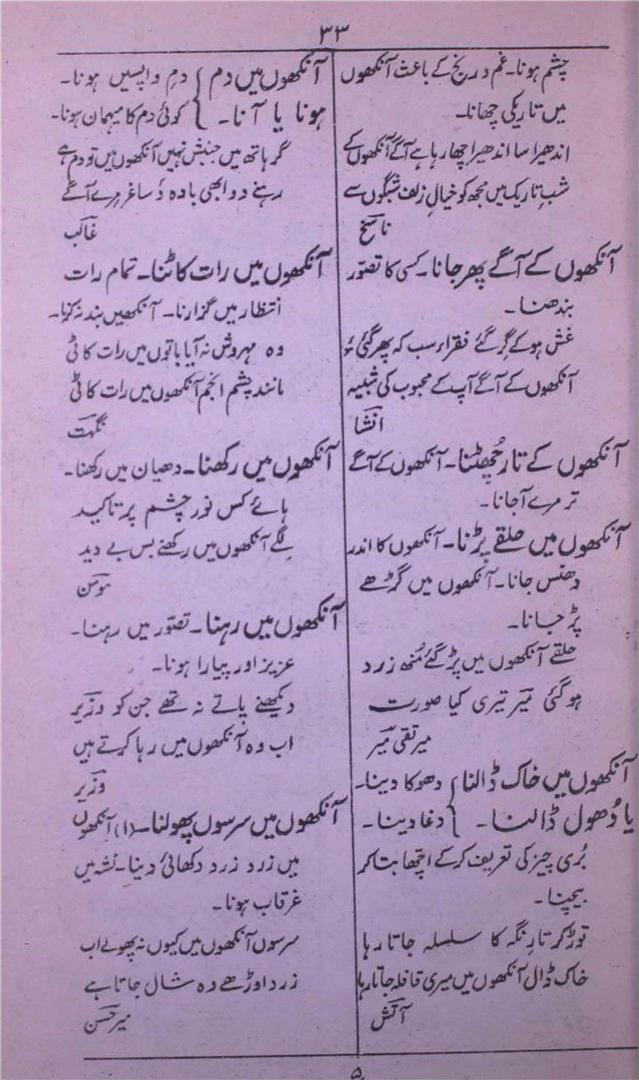 ۳۳
چشم ہونا۔ غم و رنج کے باعث آنکھوں
میں تاریکی چھانا۔
اندھیرا سا اندھیرا چھا رہا ہے آگے آنکھوں کے
شبِ تاریک میں مجھ کو خیالِ زلف شبگوں سے
ناسخ
آنکھوں کے آگے پھر جانا۔ کسی کا تصوّر
بندھنا۔
غش ہو کے گر گئے فقرا، سب کہ پھر گئی
آنکھوں کے آگے آپ کے محبوب کی شبیہ
انشا
آنکھوں کے تار چھٹنا۔ آنکھوں کے آگے
ترمرے آجانا۔
آنکھوں میں حلقے پڑنا۔ آنکھوں کا اندر
دھنس جانا۔ آنکھوں میں گڑھے
پڑ جانا۔
حلقے آنکھوں میں پڑ گئے مُنھ زرد
ہو گئی میر تیری کیا صورت
میر تقی میر
آنکھوں میں خاک ڈالنا } دھوکا دینا۔
یا دُھول ڈالنا۔ } دغا دینا۔
بُری چیز کی تعریف کر کے اچھا بتا کر
بیچنا۔
توڑ کر تارِ نگہ کا سلسلہ جاتا رہا
خاک ڈال آنکھوں میں میری قافلہ جاتا رہا
آتش
آنکھوں میں دم } دمِ واپسیں ہونا۔
ہونا یا آنا۔ } کوئی دم کا میہمان ہونا۔
گر ہاتھ میں جنبش نہیں آنکھوں میں تو دم ہے
رہنے دو ابھی بادہ و ساغر مرے آگے
غالب
آنکھوں میں رات کاٹنا۔ تمام رات
انتظار میں گزارنا۔ آنکھیں بند نہ کرنا۔
وہ مہروش نہ آیا باتوں میں رات کاٹی
مانند چشم انجم آنکھوں میں رات کاٹی
نگہت
آنکھوں میں رکھنا۔ دھیان میں رکھنا۔
ہائے کس نور چشم پر تاکید
لگے آنکھوں میں رکھنے بس بے دید
مومن
آنکھوں میں رہنا۔ تصوّر میں رہنا۔
عزیز اور پیارا ہونا۔
دیکھنے پاتے نہ تھے جن کو وزیر
اب وہ آنکھوں میں رہا کرتے ہیں
وزیر
آنکھوں میں سرسوں پھولنا۔ (۱) آنکھوں
میں زرد زرد دکھائی دینا۔ نشہ میں
غرقاب ہونا۔
سرسوں آنکھوں میں کیوں نہ پھولے اب
زرد اوڑھے وہ شال جاتا ہے
میر حسن
۵